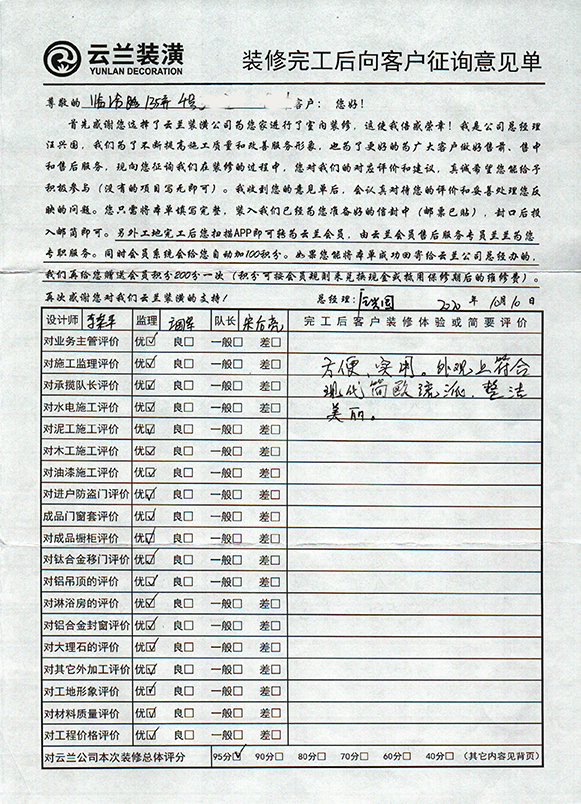 云兰装潢
YUNLAN DECORATION
装修完工后向客户征询意见单
尊敬的 客户： 您好！
首先感谢您选择了云兰装潢公司为您家进行了室内装修，这使我倍感荣幸！我是公司总经理
汪兴国，我们为了不断提高施工质量和改善服务形象，也为了更好的为广大客户做好售前、售中
和售后服务，现向您征询我们在装修的过程中，您对我们的对应评价和建议，真诚希望您能给予
积极参与（没有的项目写无即可）。我收到您的意见单后，会认真对待您的评价和妥善处理您反
映的问题。您只需将本单填写完整，装入我们已经为您准备好的信封中（邮票已贴），封口后投
入邮筒即可。另外工地完工后您扫描APP即可转为云兰会员，由云兰会员售后服务专员兰兰为您
专职服务。同时会员系统会给您自动加100积分。如果您能将本单成功回寄给云兰公司总经办的，
我们再给您赠送会员积分200分一次（积分可按会员规则来兑换现金或抵用保修期后的维修费）。
再次感谢您对我们云兰装潢的支持！ 总经理： 汪兴国 2020 年 10月10日
设计师 监理 队长 完工后客户装修体验或简要评价
对业务主管评价 优☑ 良□ 一般□ 差□
对施工监理评价 优☑ 良□ 一般□ 差□ 方便、实用。外观上符合
对承揽队长评价 优☑ 良□ 一般□ 差□ 现代简欧流派，整洁
对水电施工评价 优☑ 良□ 一般□ 差□ 美丽。
对泥工施工评价 优☑ 良□ 一般□ 差□
对木工施工评价 优☑ 良□ 一般□ 差□
对油漆施工评价 优☑ 良□ 一般□ 差□
对进户防盗门评价 优☑ 良□ 一般□ 差□
成品门窗套评价 优☑ 良□ 一般□ 差□
对成品橱柜评价 优☑ 良□ 一般□ 差□
对钛合金移门评价 优☑ 良□ 一般□ 差□
对铝吊顶的评价 优☑ 良□ 一般□ 差□
对淋浴房的评价 优☑ 良□ 一般□ 差□
对铝合金封窗评价 优☑ 良□ 一般□ 差□
对大理石的评价 优☑ 良□ 一般□ 差□
对其它外加工评价 优☑ 良□ 一般□ 差□
对工地形象评价 优☑ 良□ 一般□ 差□
对材料质量评价 优☑ 良□ 一般□ 差□
对工程价格评价 优☑ 良□ 一般□ 差□
对云兰公司本次装修总体评分 95分☑ 90分□ 80分□ 70分□ 60分□ 40分□ （其它内容见背页）